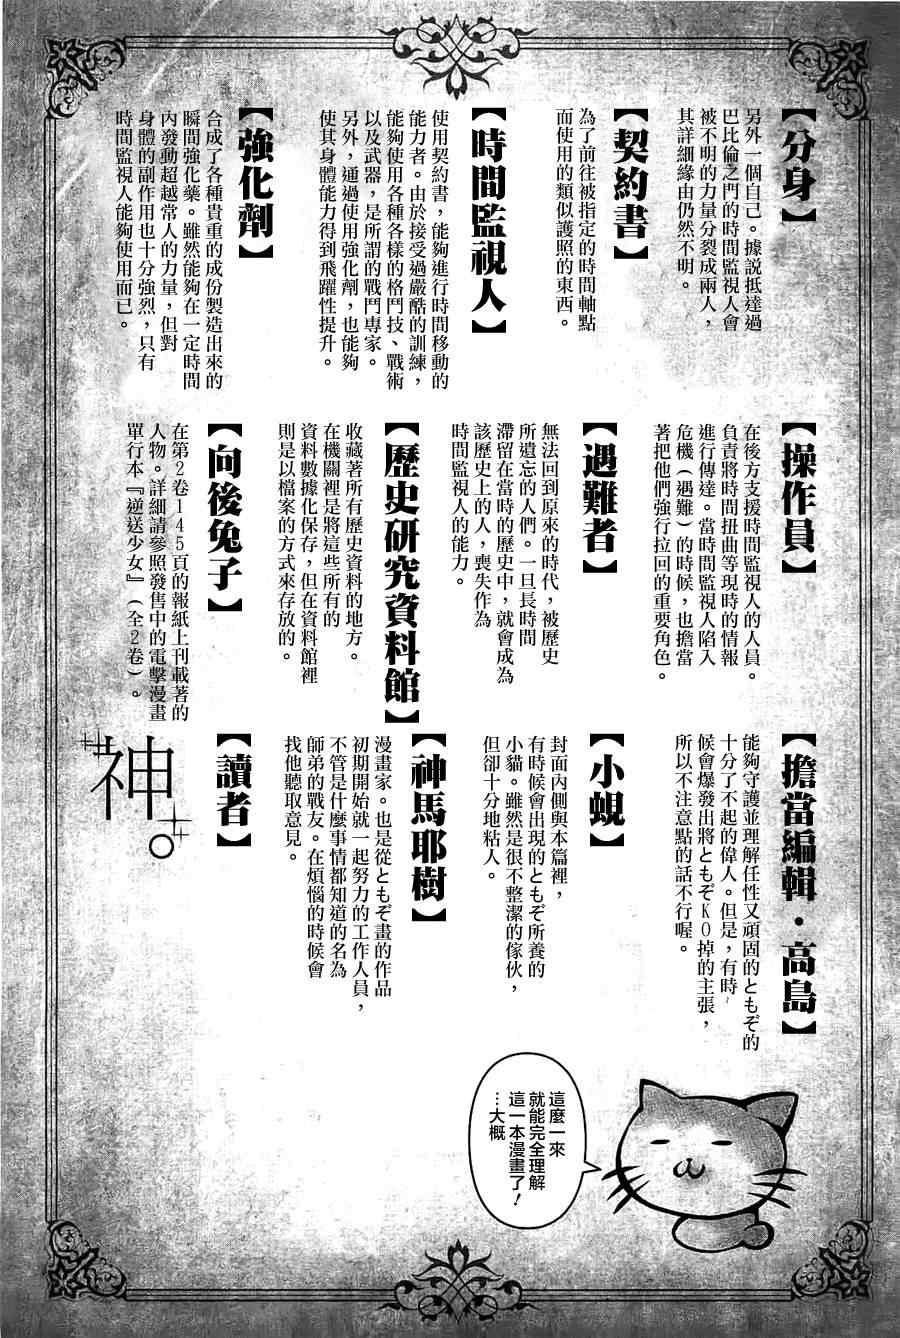 【分身】
另外一個自己。據說抵達過
巴比倫之門的時間監視人會
被不明的力量分裂成兩人，
其詳細緣由仍然不明。
【契約書】
為了前往被指定的時間軸點
而使用的類似護照的東西。
【時間監視人】
使用契約書，能夠進行時間移動的
能力者。由於接受過嚴酷的訓練，
能夠使用各種各樣的格鬥技、戰術
以及武器，是所謂的戰鬥專家。
另外，通過使用強化劑，也能夠
使其身體能力得到飛躍性提升。
【強化劑】
合成了各種貴重的成份製造出來的
瞬間強化藥。雖然能夠在一定時間
內發動超越常人的力量，但對
身體的副作用也十分強烈，只有
時間監視人能夠使用而已。
【操作員】
在後方支援時間監視人的人員。
負責將時間扭曲等現時的情報
進行傳達。當時間監視人陷入
危機（遇難）的時候，也擔當
著把他們強行拉回的重要角色。
【遇難者】
無法回到原來的時代，被歷史
所遺忘的人們。一旦長時間
滯留在當時的歷史中，就會成為
該歷史上的人，喪失作為
時間監視人的能力。
【歷史研究資料館】
收藏著所有歷史資料的地方。
在機關裡是將這些所有的
資料數據化保存，但在資料館裡
則是以檔案的方式來存放的。
【向後兔子】
在第2卷145頁的報紙上刊載著的
人物。詳細請參照發售中的電擊漫畫
單行本『逆送少女』（全2卷）。
【擔當編輯・高島】
能夠守護並理解任性又頑固的ともぞ的
十分了不起的偉人。但是，有時
候會爆發出將ともぞKO掉的主張，
所以不注意點的話不行喔。
【小蜆】
封面內側與本篇裡，
有時候會出現的ともぞ所養的
小貓。雖然是很不整潔的傢伙，
但卻十分地粘人。
【神馬耶樹】
漫畫家。也是從ともぞ畫的作品
初期開始就一起努力的工作人員，
不管是什麼事情都知道的名為
師弟的戰友。在煩惱的時候會
找他聽取意見。
【讀者】
神。
這麼一來
就能完全理解
這一本漫畫了！
…大概